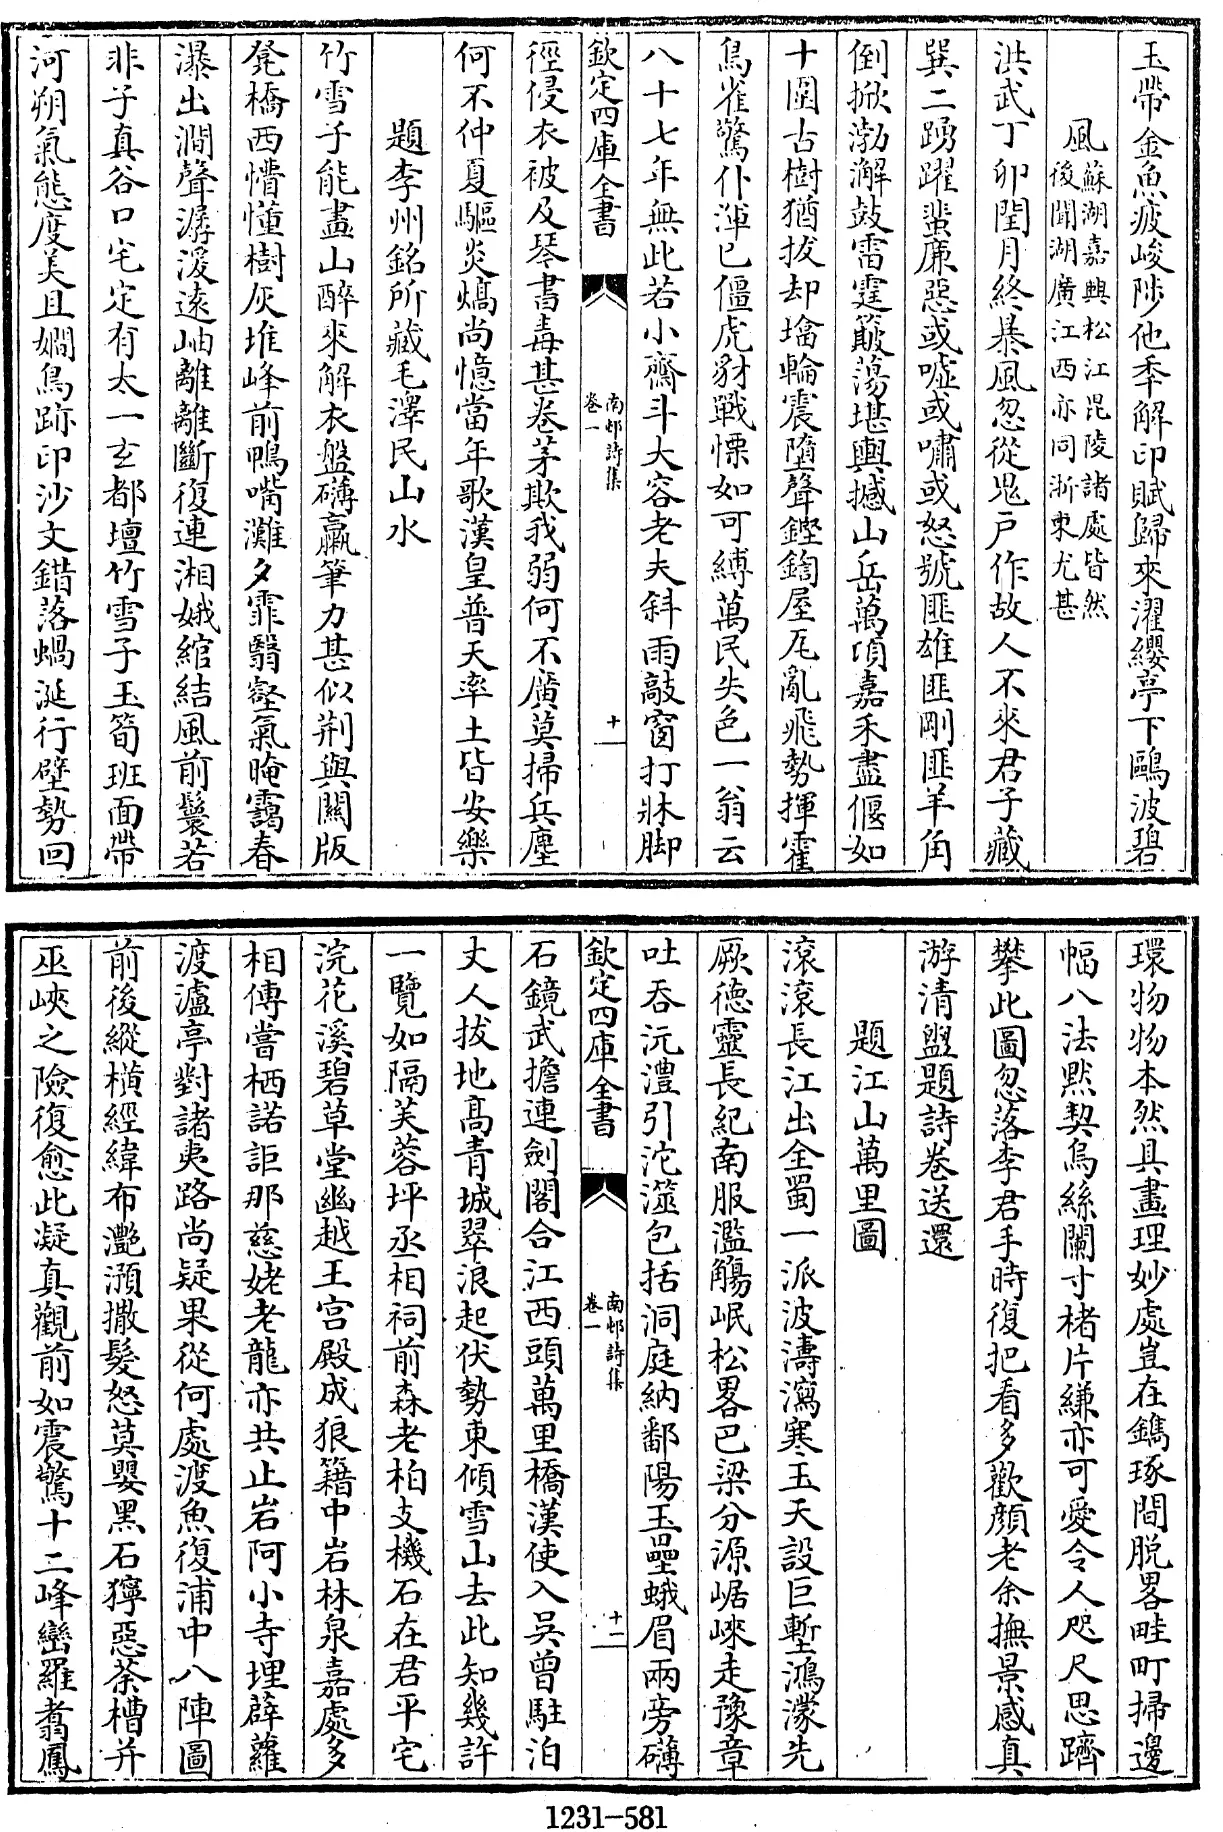 玉帶金魚疲峻陟他年解印賦歸來濯纓亭下鷗波碧
風蘇湖嘉興松江毘陵諸處皆然
後聞湖廣江西亦同浙東尤甚
洪武丁卯閏月終暴風忽從鬼戸作故人不來君子藏
巽二踴躍蜚廉惡或噓或嘯或怒號匪雄匪剛匪羊角
倒掀渤澥鼓雷霆簸蕩堪輿撼山岳萬頃嘉禾盡偃如
十圍古樹猶拔却墻輪震墮聲鏗鍧屋瓦亂飛勢揮霍
鳥雀驚仆渾已僵虎豺戰慄如可縛萬民失色一翁云
八十七年無此若小齋斗大容老夫斜雨敲窗打牀脚
欽定四庫全書
南邨詩集
卷一
十一
徑侵衣被及琴書毒甚卷茅欺我弱何不廣莫掃兵塵
何不仲夏驅炎熇尚憶當年歌漢皇普天率土皆安樂
題李州銘所藏毛澤民山水
竹雪子能畫山醉來解衣盤礴臝筆力甚似荆與關版
凳橋西懵懂樹灰堆峰前鴨嘴灘夕霏翳壑氣晻靄春
瀑出澗聲潺湲遠岫離離斷復連湘娥綰結風前鬟若
非子真谷口宅定有太一玄都壇竹雪子玉筍班面帶
河朔氣態度美且嫺鳥跡印沙文錯落蝸涎行壁勢回
環物物本然具畫理妙處豈在鐫琢間脱畧畦町掃邊
幅八法黙契烏絲闌寸楮片縑亦可愛令人咫尺思躋
攀此圖忽落李君手時復把看多歡顔老余撫景感真
游清盥題詩卷送還
題江山萬里圖
滾滾長江出全蜀一派波濤瀉寒玉天設巨塹鴻濛先
厥徳靈長紀南服濫觴岷松畧巴梁分源崌崍走豫章
吐吞沅澧引沱澨包括洞庭納鄱陽玉壘蛾眉兩旁礴
欽定四庫全書
南邨詩集
卷一
十二
石鏡武擔連劍閣合江西頭萬里橋漢使入吳曾駐泊
丈人拔地髙青城翠浪起伏勢東傾雪山去此知幾許
一覽如隔芙蓉坪丞相祠前森老柏支機石在君平宅
浣花溪碧草堂幽越王宫殿成狼籍中岩林泉嘉處多
相傳嘗栖諾詎那慈姥老龍亦共止岩阿小寺埋薜蘿
渡瀘亭對諸夷路尚疑果從何處渡魚復浦中八陣圖
前後縱橫經緯布灔澦撒髮怒莫嬰黑石獰惡茶槽并
巫峽之險復愈此凝真觀前如震驚十二峰巒羅翥鳳